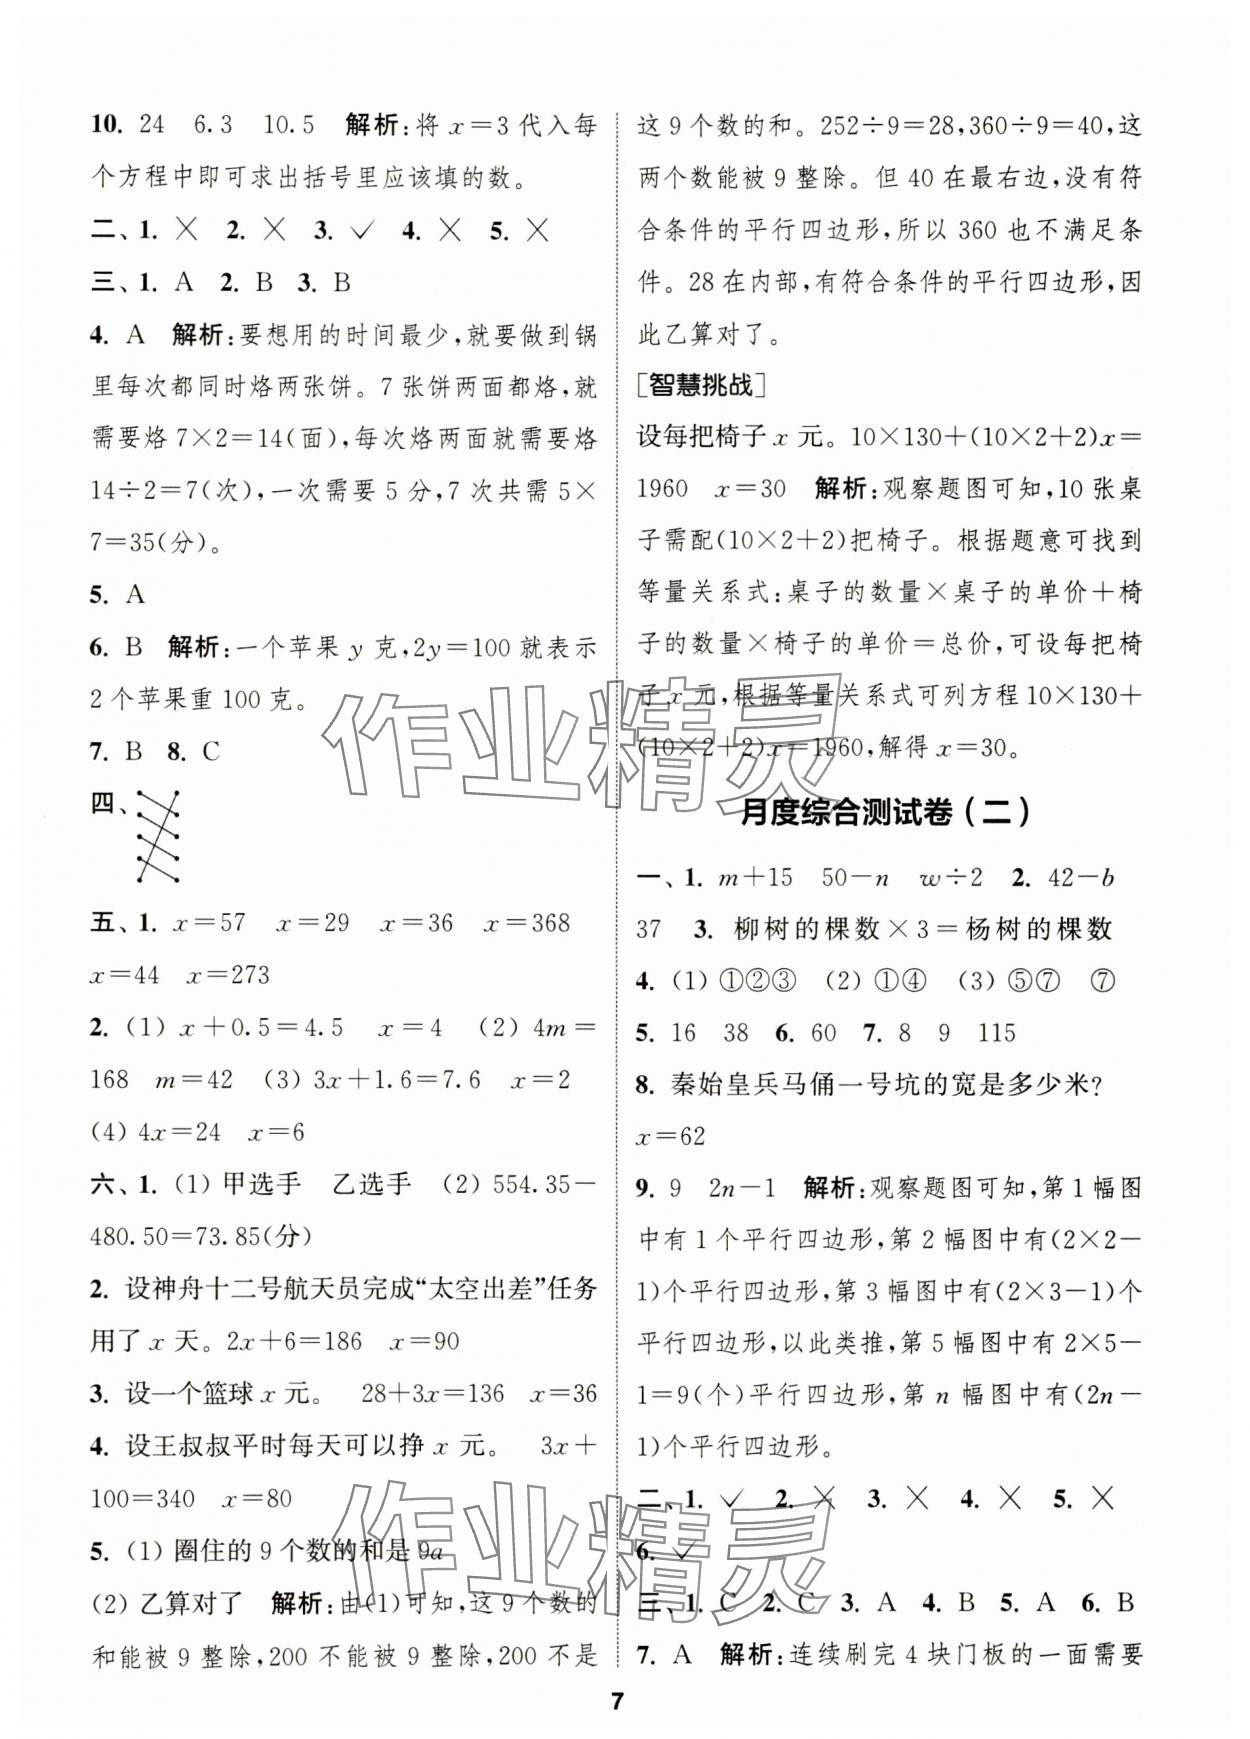 10. 24　6.3　10.5　解析:将 x=3 代入每
个方程中即可求出括号里应该填的数。
二、1. ×　2. ×　3. ✓　4. ×　5. ×
三、1. A　2. B　3. B
4. A　解析:要想用的时间最少,就要做到锅
里每次都同时烙两张饼。7 张饼两面都烙,就
需要烙 7×2=14(面),每次烙两面就需要烙
14÷2=7(次),一次需要 5 分,7 次共需 5×
7=35(分)。
5. A
6. B　解析:一个苹果 y 克,2y=100 就表示
2 个苹果重 100 克。
7. B　8. C
四、
五、1. x=57　x=29　x=36　x=368
x=44　x=273
2. (1) x+0.5=4.5　x=4　(2) 4m=
168　m=42　(3) 3x+1.6=7.6　x=2
(4) 4x=24　x=6
六、1. (1) 甲选手　乙选手　(2) 554.35-
480.50=73.85(分)
2. 设神舟十二号航天员完成“太空出差”任务
用了 x 天。2x+6=186　x=90
3. 设一个篮球 x 元。　28+3x=136　x=36
4. 设王叔叔平时每天可以挣 x 元。　3x+
100=340　x=80
5. (1) 圈住的 9 个数的和是 9a
(2) 乙算对了　解析:由(1)可知,这 9 个数的
和能被 9 整除,200 不能被 9 整除,200 不是
这 9 个数的和。252÷9=28,360÷9=40,这
两个数能被 9 整除。但 40 在最右边,没有符
合条件的平行四边形,所以 360 也不满足条
件。28 在内部,有符合条件的平行四边形,因
此乙算对了。
[智慧挑战]
设每把椅子 x 元。10×130+(10×2+2)x=
1960　x=30　解析:观察题图可知,10 张桌
子需配(10×2+2)把椅子。根据题意可找到
等量关系式:桌子的数量×桌子的单价+椅
子的数量×椅子的单价=总价,可设每把椅
子 x 元,根据等量关系式可列方程 10×130+
(10×2+2)x=1960,解得 x=30。
月度综合测试卷(二)
一、1. m+15　50-n　w÷2　2. 42-b
37　3. 柳树的棵数×3=杨树的棵数
4. (1) ①②③　(2) ①④　(3) ⑤⑦　⑦
5. 16　38　6. 60　7. 8　9　115
8. 秦始皇兵马俑一号坑的宽是多少米?
x=62
9. 9　2n-1　解析:观察题图可知,第 1 幅图
中有 1 个平行四边形,第 2 幅图中有(2×2-
1)个平行四边形,第 3 幅图中有(2×3-1)个
平行四边形,以此类推,第 5 幅图中有 2×5-
1=9(个)平行四边形,第 n 幅图中有(2n-
1)个平行四边形。
二、1. ✓　2. ×　3. ×　4. ×　5. ×
6. ✓
三、1. C　2. C　3. A　4. B　5. A　6. B
7. A　解析:连续刷完 4 块门板的一面需要
7
作业精灵
作业精灵